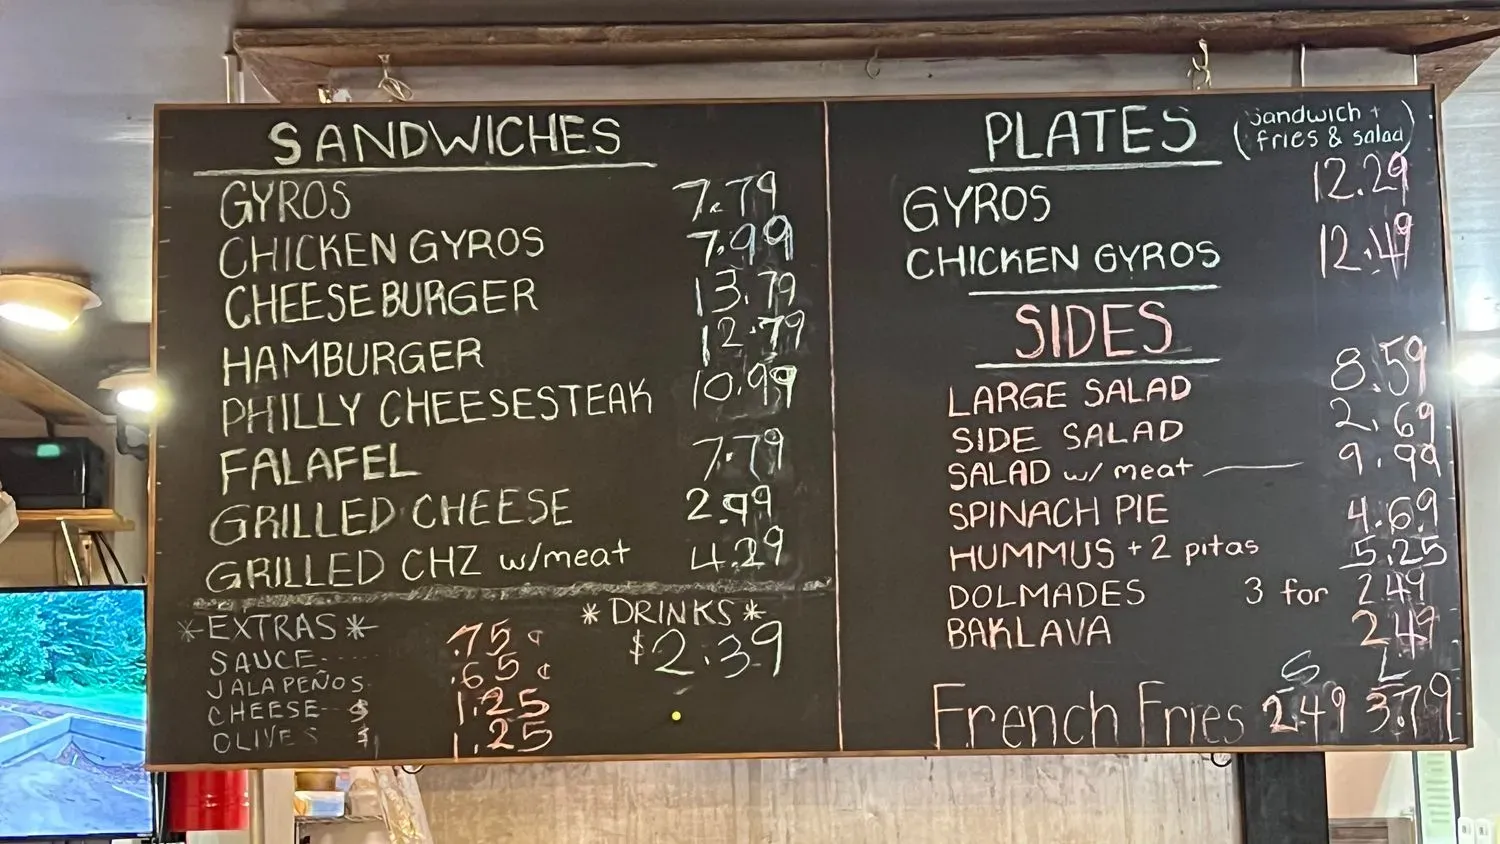 SANDWICHES
GYROS 7.79
CHICKEN GYROS 7.99
CHEESEBURGER 13.79
HAMBURGER 12.79
PHILLY CHEESESTEAK 10.99
FALAFEL 7.79
GRILLED CHEESE 2.99
GRILLED CHZ w/meat 4.29
*EXTRAS*
SAUCE .75 ¢
JALAPEÑOS .65 ¢
CHEESE $ 1.25
OLIVES $ 1.25
*DRINKS*
$2.39
PLATES (sandwich + fries & salad)
GYROS 12.29
CHICKEN GYROS 12.49
SIDES
LARGE SALAD 8.59
SIDE SALAD 2.69
SALAD w/ meat 9.99
SPINACH PIE 4.69
HUMMUS + 2 pitas 5.25
DOLMADES 3 for 2.49
BAKLAVA 2.49
S L
French Fries 2.49 3.79